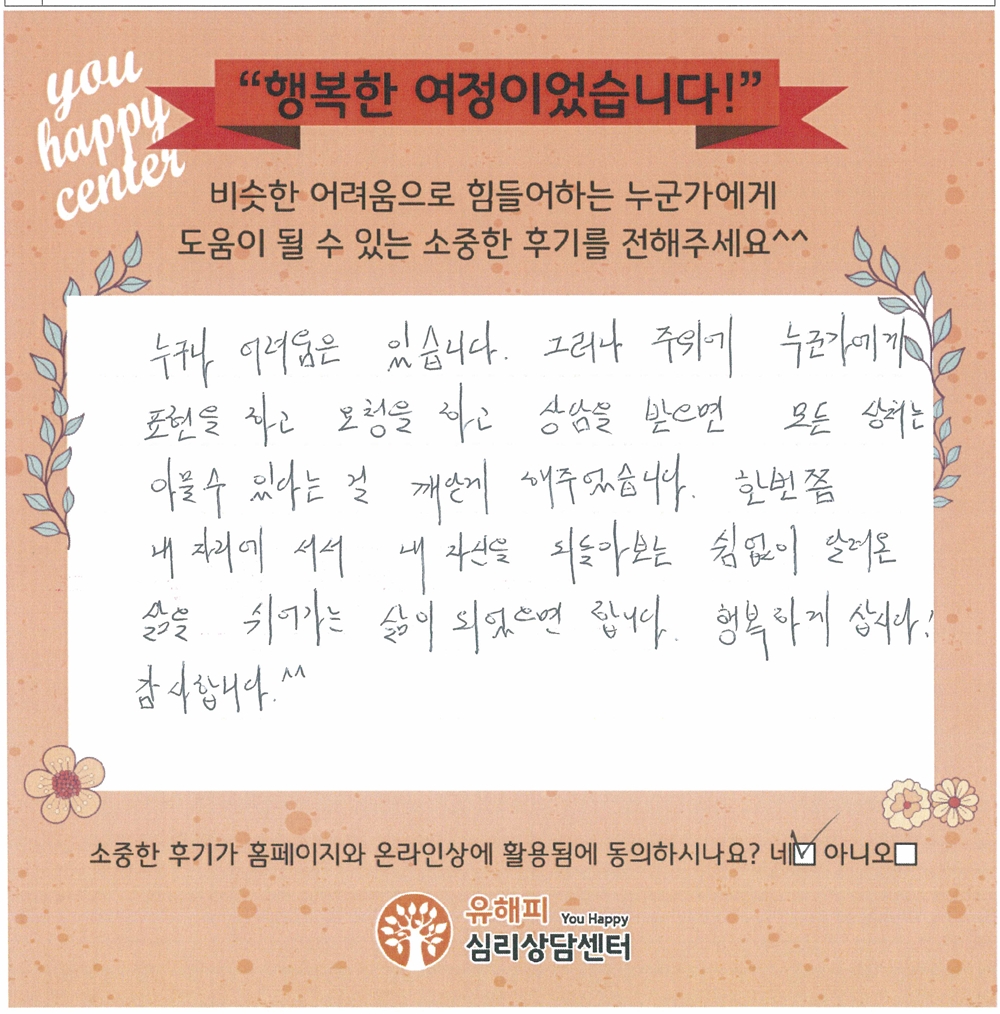 you
happy
center
“행복한 여정이었습니다!”
비슷한 어려움으로 힘들어하는 누군가에게
도움이 될 수 있는 소중한 후기를 전해주세요^^
누구나 어려움은 있습니다. 그러나 주위에 누군가에게
표현을 하고 요청을 하고 상담을 받으면 모든 상처는
아물수 있다는 걸 깨닫게 해주었습니다. 한번쯤
내 자리에 서서 내 자신을 되돌아보는 쉼없이 달려온
삶을 쉬어가는 삶이 되었으면 합니다. 행복하게 삽시다!
감사합니다.^^
소중한 후기가 홈페이지와 온라인상에 활용됨에 동의하시나요? 네☑ 아니오☐
유해피 You Happy
심리상담센터